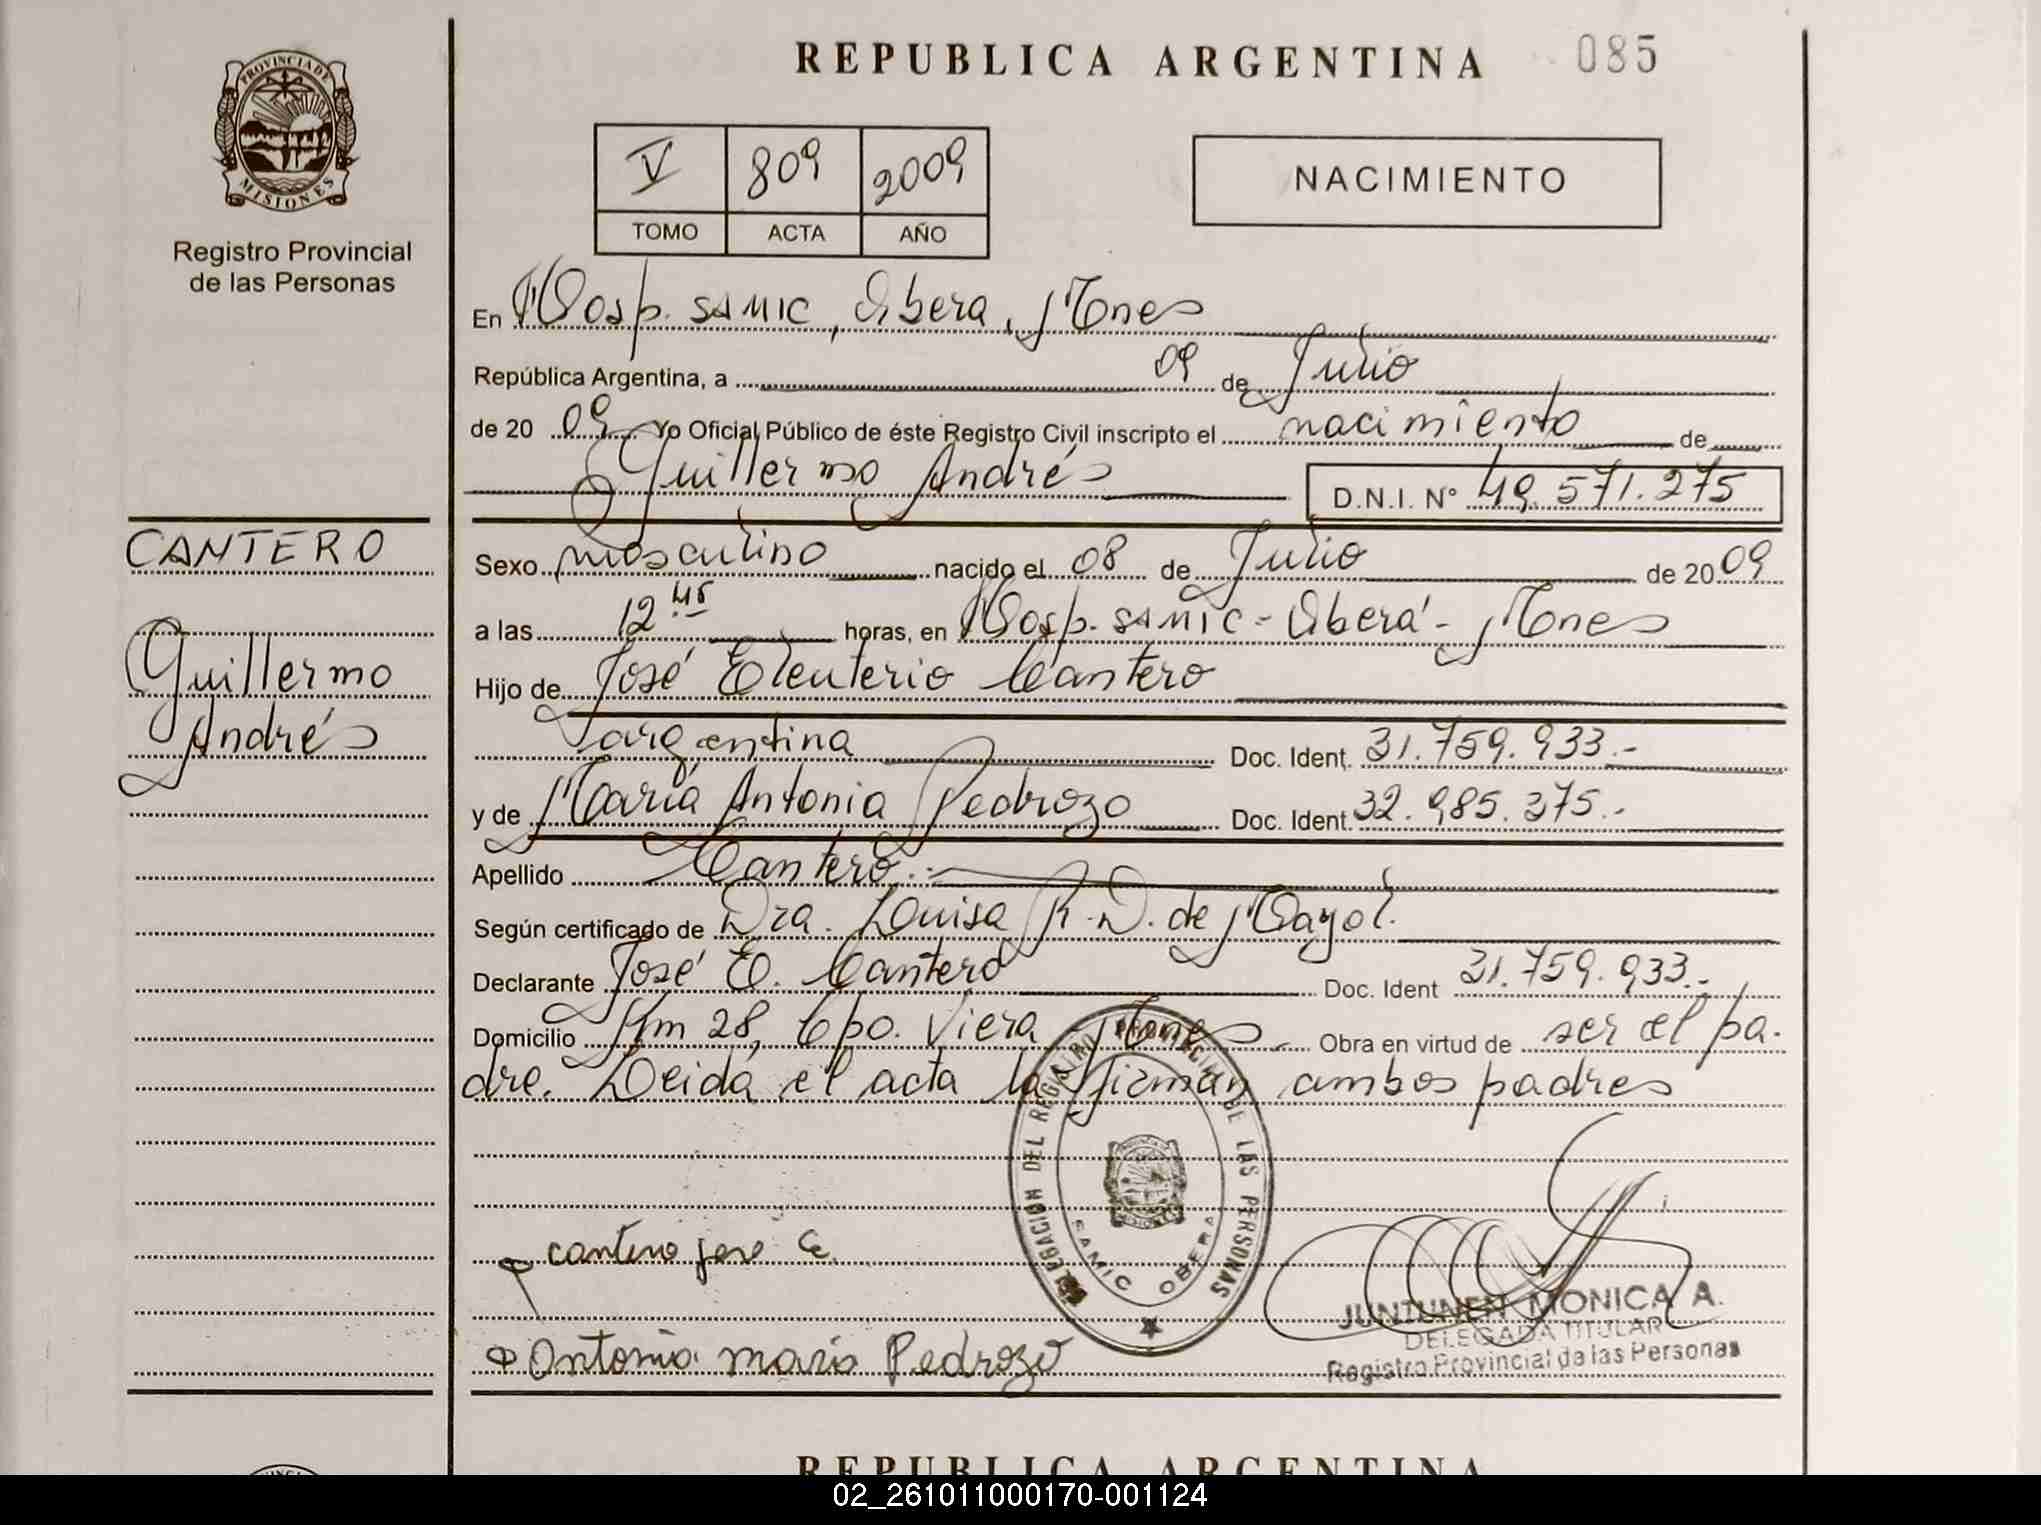 REPUBLICA ARGENTINA 085
PROVINCIA DE
MISIONES
Registro Provincial
de las Personas
V 809 2009
TOMO ACTA AÑO
NACIMIENTO
En Hosp. SAMIC, Oberá, Mnes
República Argentina, a 09 de Julio
de 2009 Yo Oficial Público de éste Registro Civil inscripto el nacimiento de
Guillermo Andrés D.N.I. Nº 49.571.275
CANTERO
Guillermo
Andrés
Sexo masculino nacido el 08 de Julio de 2009
a las 12 45 horas, en Hosp. SAMIC - Oberá - Mnes
Hijo de José Eleuterio Cantero
argentina Doc. Ident. 31.759.933.-
y de María Antonia Pedrozo Doc. Ident. 32.985.375.-
Apellido Cantero.-
Según certificado de Dra. Luisa R. D. de Mayol.
Declarante José E. Cantero Doc. Ident 31.759.933.-
Domicilio Km 28, Cpo. Viera - Mnes. Obra en virtud de ser el pa-
dre. Leida el acta la firman ambos padres
DELEGACION DEL REGISTRO PROVINCIAL DE LAS PERSONAS
SAMIC OBERA
cantero jose E.
Antonia maria Pedrozo
JUNTUNEN MONICA A.
DELEGADA TITULAR
Registro Provincial de las Personas
REPUBLICA ARGENTINA
02_261011000170-001124